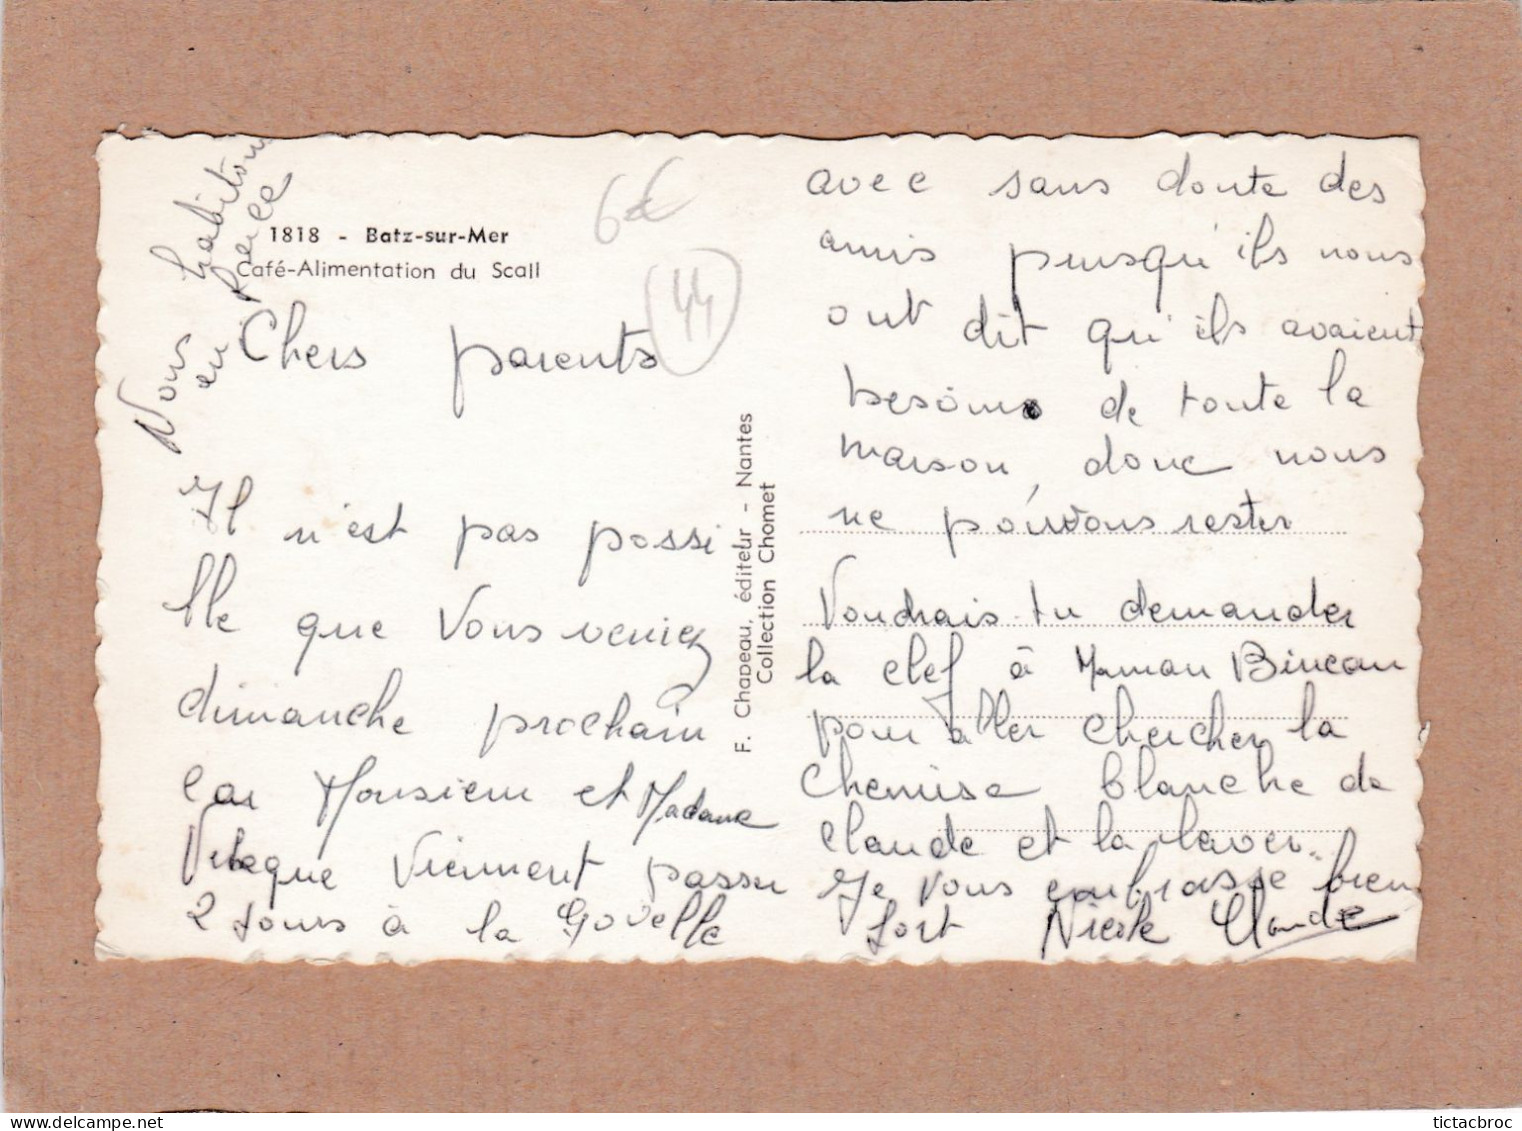 Nous habitons
en face
1818 - Batz-sur-Mer
Café-Alimentation du Scall
6€
44
Chers parents
Il n'est pas possi
ble que Vous veniez
dimanche prochain
car Monsieur et Madame
viennent passer
2 jours à la Govelle
F. Chapeau, éditeur - Nantes
Collection Chomet
avec sans doute des
amis puisqu'ils nous
ont dit qu'ils avaient
besoins de toute la
maison, donc nous
ne pouvons rester
Voudrais tu demander
la clef à Maman Bineau
pour aller chercher la
chemise blanche de
claude et la laver..
Je vous embrasse bien
fort Nicole Claude
tictacbroc